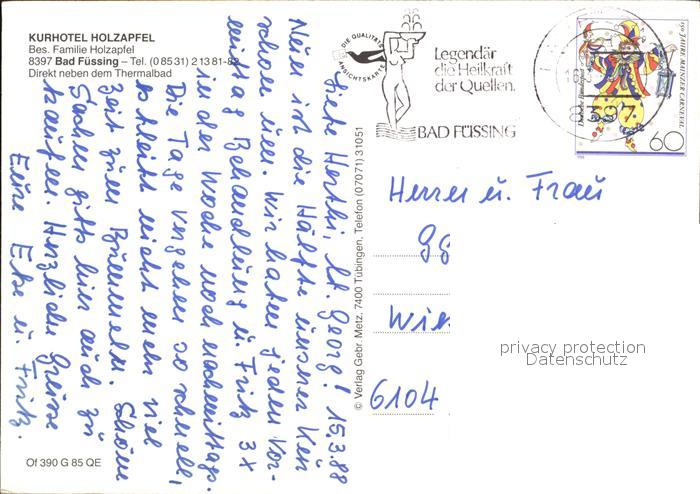 KURHOTEL HOLZAPFEL
Bes. Familie Holzapfel
8397 Bad Füssing – Tel. (0 85 31) 2 13 81-8
Direkt neben dem Thermalbad
15.3.88
Liebe Herthi, lb. Georg!
Nun ist die Hälfte unserer Kur
schon um. Wir haben jeden Vor-
mittag Behandlung u. Fritz 3x
in der Woche noch nachmittags.
Die Tage vergehen so schnell,
es bleibt nicht mehr viel
Zeit zum Bummeln. Schöne
Sachen gibts hier auch zu
kaufen. Herzliche Grüsse
Eure Else u. Fritz.
Of 390 G 85 QE
© Verlag Gebr. Metz, 7400 Tübingen, Telefon (07071) 31051
DIE QUALITÄTS
ANSICHTSKARTE
Legendär
die Heilkraft
der Quellen.
BAD FÜSSING
8397
150 JAHRE MAINZER CARNEVAL
Deutsche Bundespost
60
Herrn u. Frau
Gg
Wie
6104
privacy protection
Datenschutz